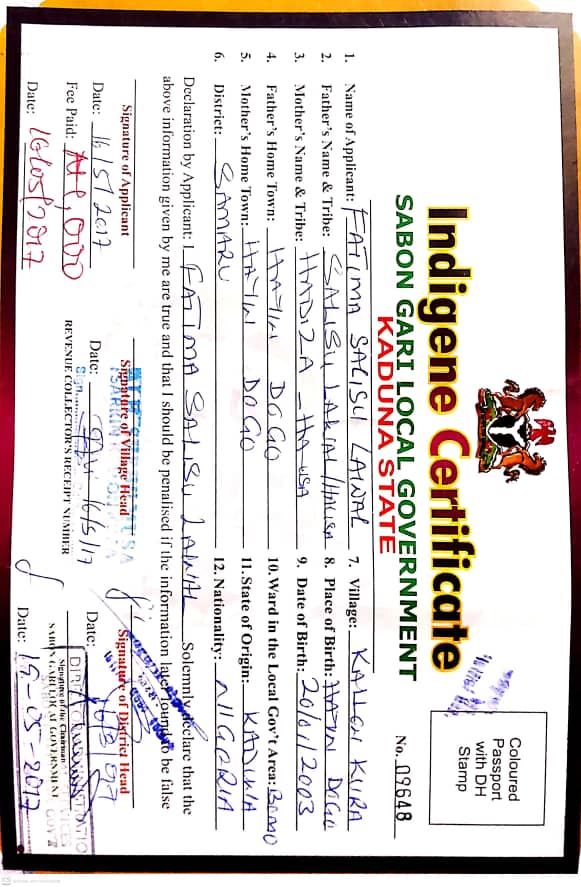 Indigene Certificate
SABON GARI LOCAL GOVERNMENT
KADUNA STATE
Coloured
Passport
with DH
Stamp
No. 09648
1. Name of Applicant: FATIMA SALISU LAWAL
2. Father's Name & Tribe: SALISU LAWAL/HAUSA
3. Mother's Name & Tribe: HADIZA - HAUSA
4. Father's Home Town: HAYIN DOGO
5. Mother's Home Town: HAYIN DOGO
6. District: SAMARU
7. Village: KALLON KURA
8. Place of Birth: HAYIN DOGO
9. Date of Birth: 20/01/2003
10. Ward in the Local Gov't Area: BOMO
11. State of Origin: KADUNA
12. Nationality: NIGERIA
Declaration by Applicant: I FATIMA SALISU LAWAL Solemnly declare that the
above information given by me are true and that I should be penalised if the information later found to be false
Signature of Applicant
Date: 16/5/2017
Fee Paid: ₦1,000
Date: 16/05/2017
Signature of Village Head
Date: 16/5/17
Sign
REVENUE COLLECTOR'S RECEIPT NUMBER
Signature of District Head
Date:
Signature of the Chairman
SABON GARI LOCAL GOVERNMENT
Date: 19-05-2017